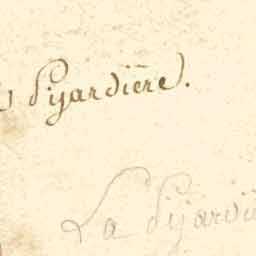 Pijardière).
La Pijardiè